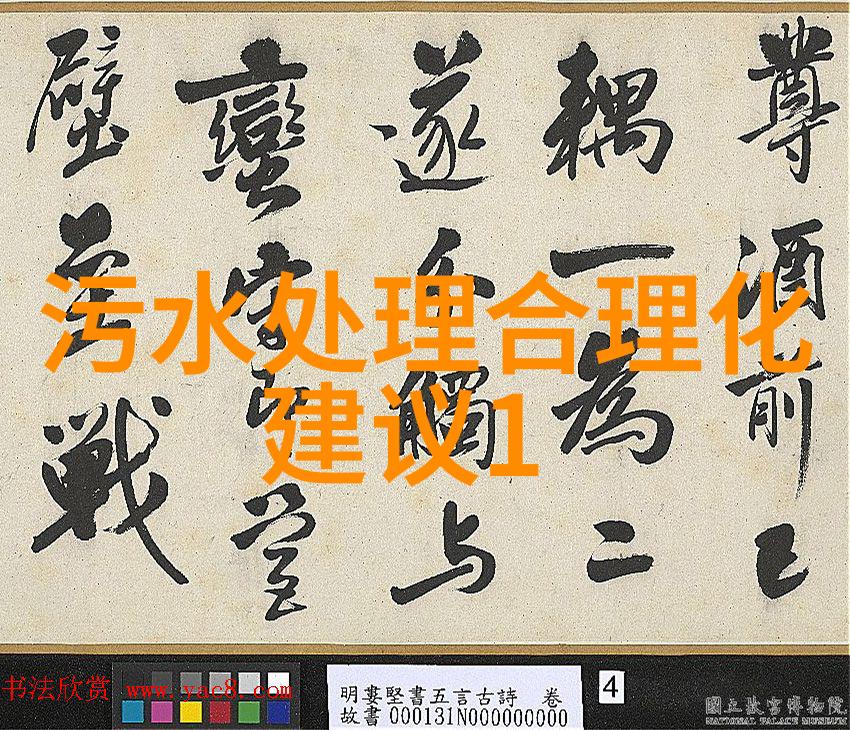 污水处理合理化
建议1
尊酒前已
耦一為二
遂觸与
蠻
壁戰
书法欣赏 www.yac8.com
明婁堅書五言古詩 卷
故書 000131N000000000
4
國立故宮博物院
NATIONAL PALACE MUSEUM